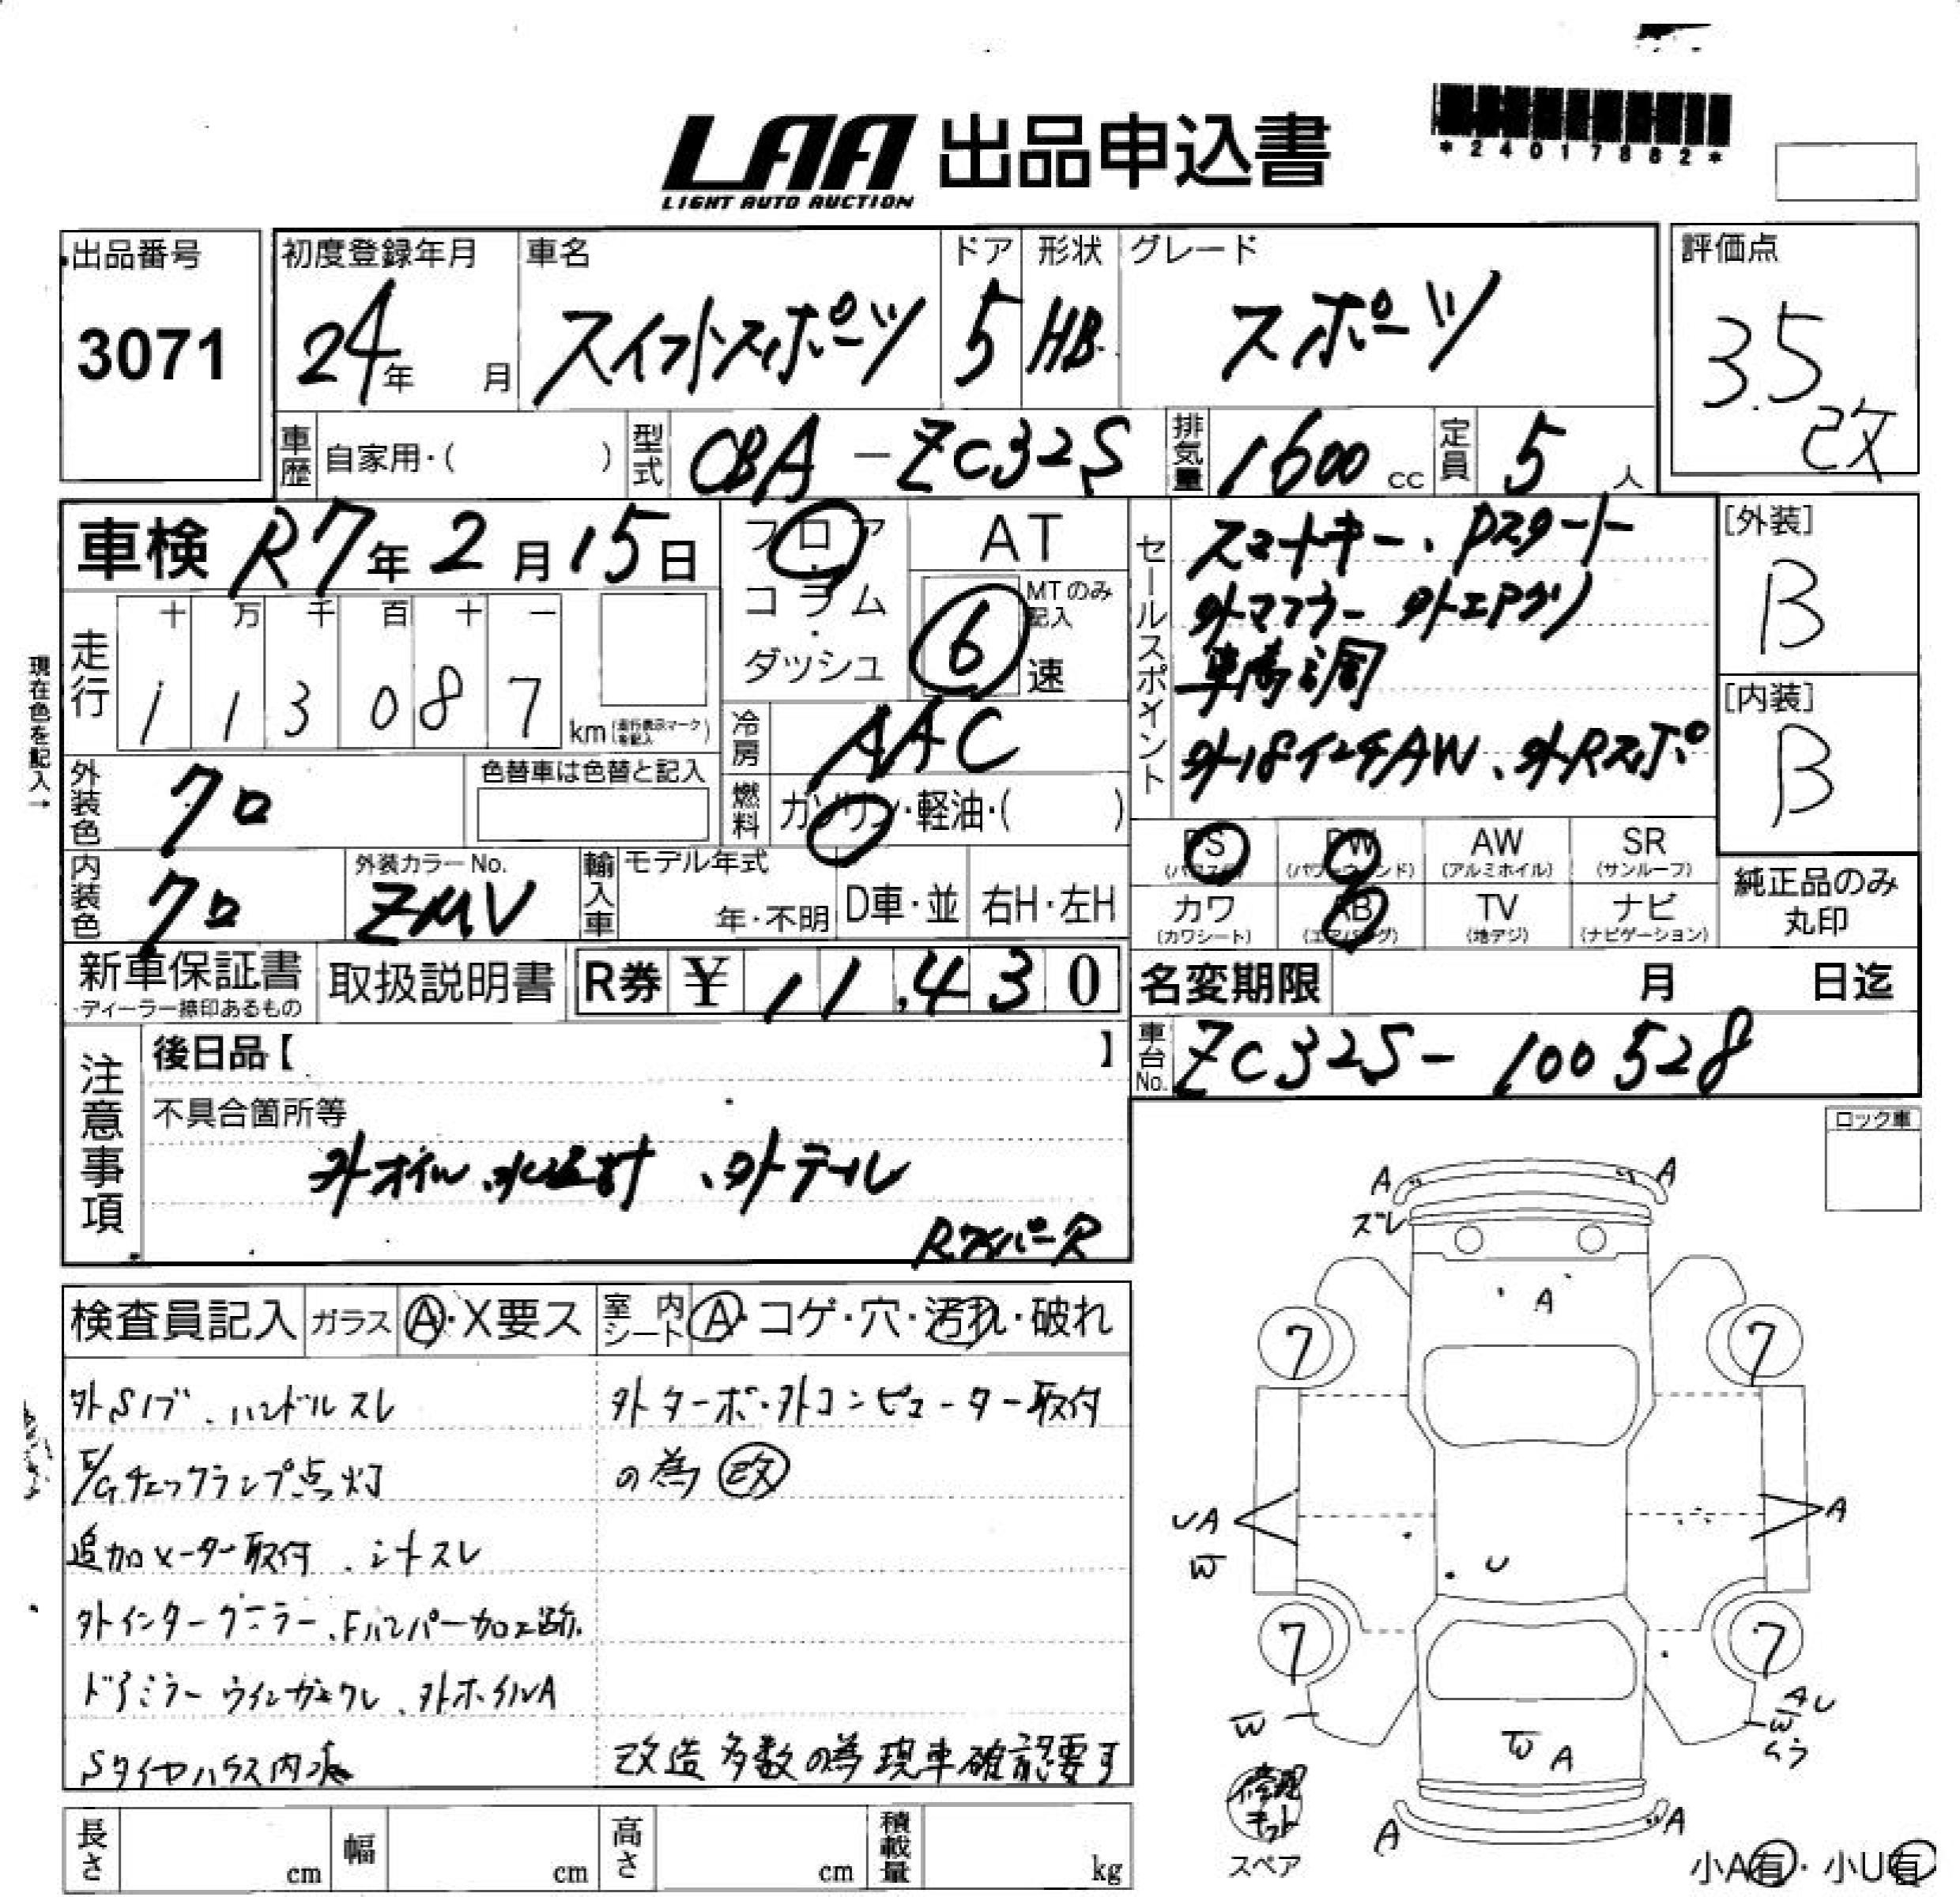 LAA 出品申込書
LIGHT AUTO AUCTION
*24017882*
出品番号
3071
初度登録年月
24年 月
車名
スイフトスポーツ
ドア
5
形状
HB
グレード
スポーツ
評価点
3.5
改
車歴 自家用・( )
型式 CBA-ZC32S
排気量 1600 cc
定員 5 人
車検 R7年2月15日
フロア・コラム・ダッシュ
AT
MTのみ記入
6 速
走行
十 万 千 百 十 一
1 1 3 0 8 7
km (走行表示マークを記入)
現在色を記入→
冷房 AAC
燃料 ガソリン・軽油・( )
外装色 クロ
色替車は色替と記入
内装色 クロ
外装カラーNo.
ZMV
輸入車 モデル年式
年・不明
D車・並
右H・左H
セールスポイント
スマートキー、Pスタート
外マフラー 外エアクリ
車高調
外18インチAW、外Rスポ
[外装]
B
[内装]
B
PS (パワステ)
PW (パワーウィンド)
AW (アルミホイル)
SR (サンルーフ)
カワ (カワシート)
AB (エアバッグ)
TV (地デジ)
ナビ (ナビゲーション)
純正品のみ
丸印
新車保証書
・ディーラー捺印あるもの
取扱説明書
R券 ¥ 11,430
名変期限 月 日迄
車台No. ZC32S-100528
注意事項
後日品【 】
不具合箇所等
外オイル、水温計、外テール
Rワイパーレス
ロック車
検査員記入
ガラス A・X要ス
室内シート A・コゲ・穴・汚れ・破れ
外Sノブ、ハンドルスレ
E/Gチェックランプ点灯
追加メーター取付、シートスレ
外インタークーラー、Fバンパー加工跡
ドアミラーウインカーワレ、外ホイルA
Sタイヤハウス内
外ターボ・外コンピューター取付
の為 改
改造多数の為現車確認要す
A A
ズレ
A
7 7
UA A
W
U
7 7
W
AU
W
ムラ
W A
A A
修理キット
スペア
小A有・小U有
長さ cm
幅 cm
高さ cm
積載量 kg